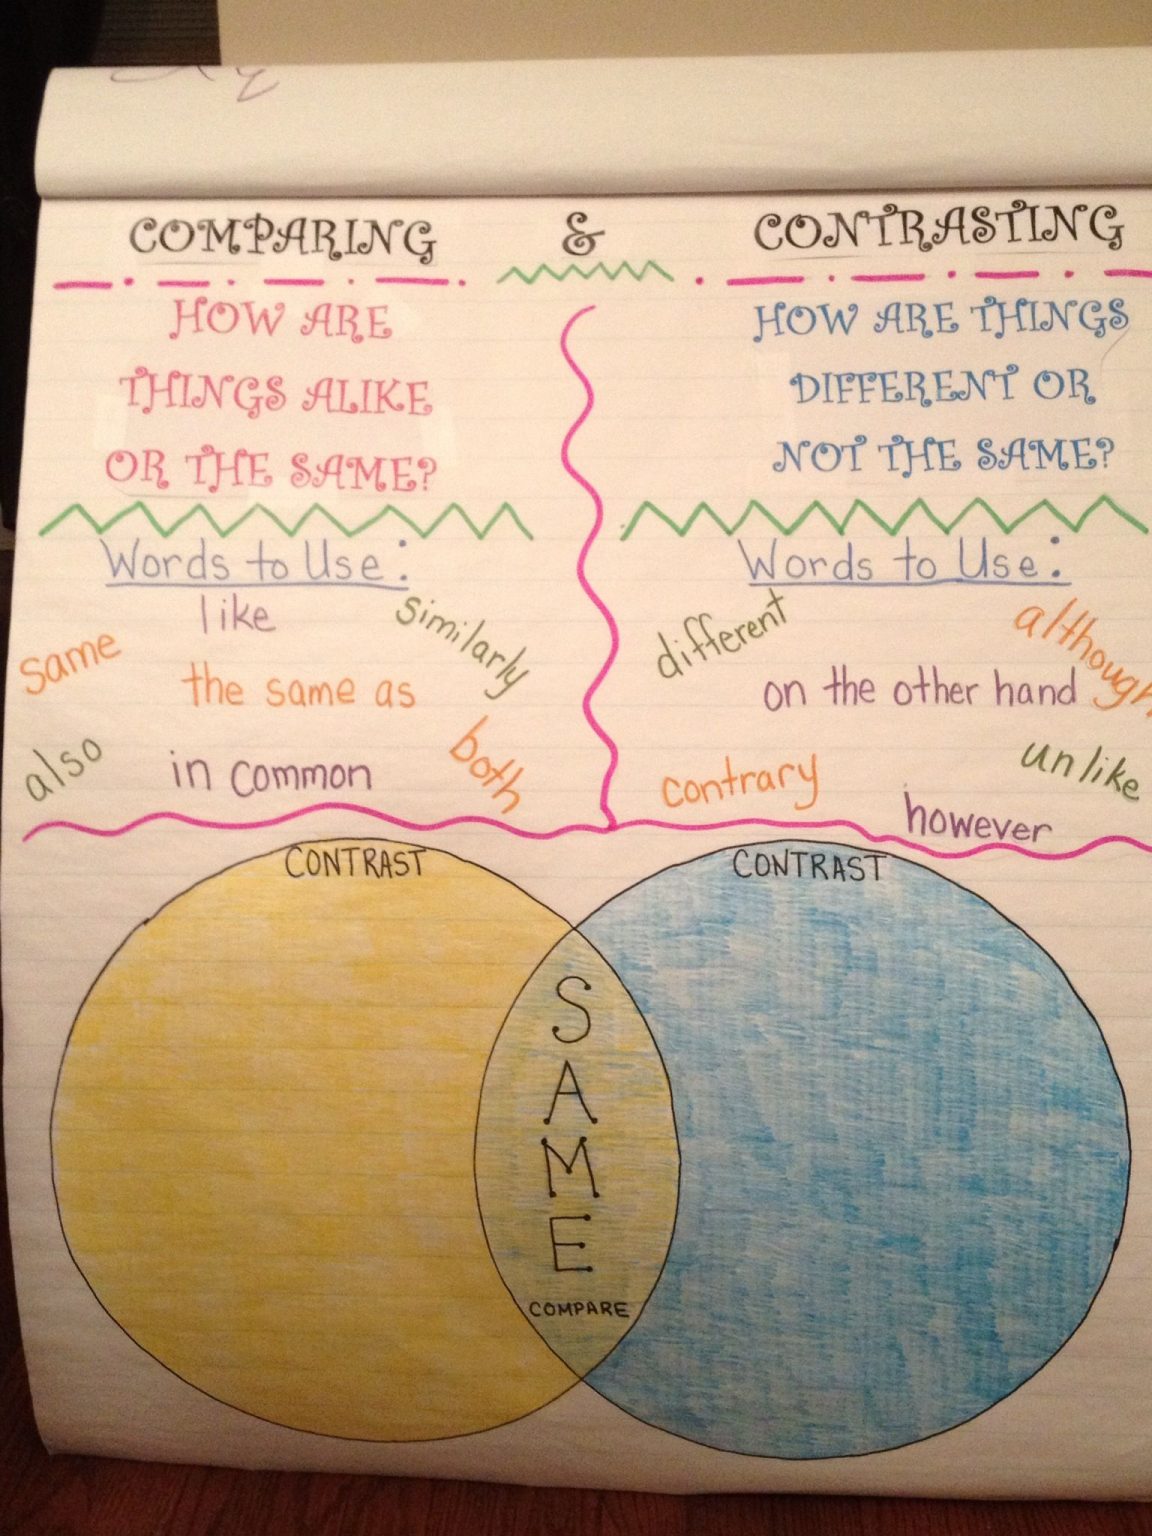 COMPARING & CONTRASTING
HOW ARE
THINGS ALIKE
OR THE SAME?
Words to Use:
like
similarly
same
the same as
also
in common
both
HOW ARE THINGS
DIFFERENT OR
NOT THE SAME?
Words to Use:
different
although
on the other hand
unlike
contrary
however
CONTRAST
CONTRAST
SAME
COMPARE